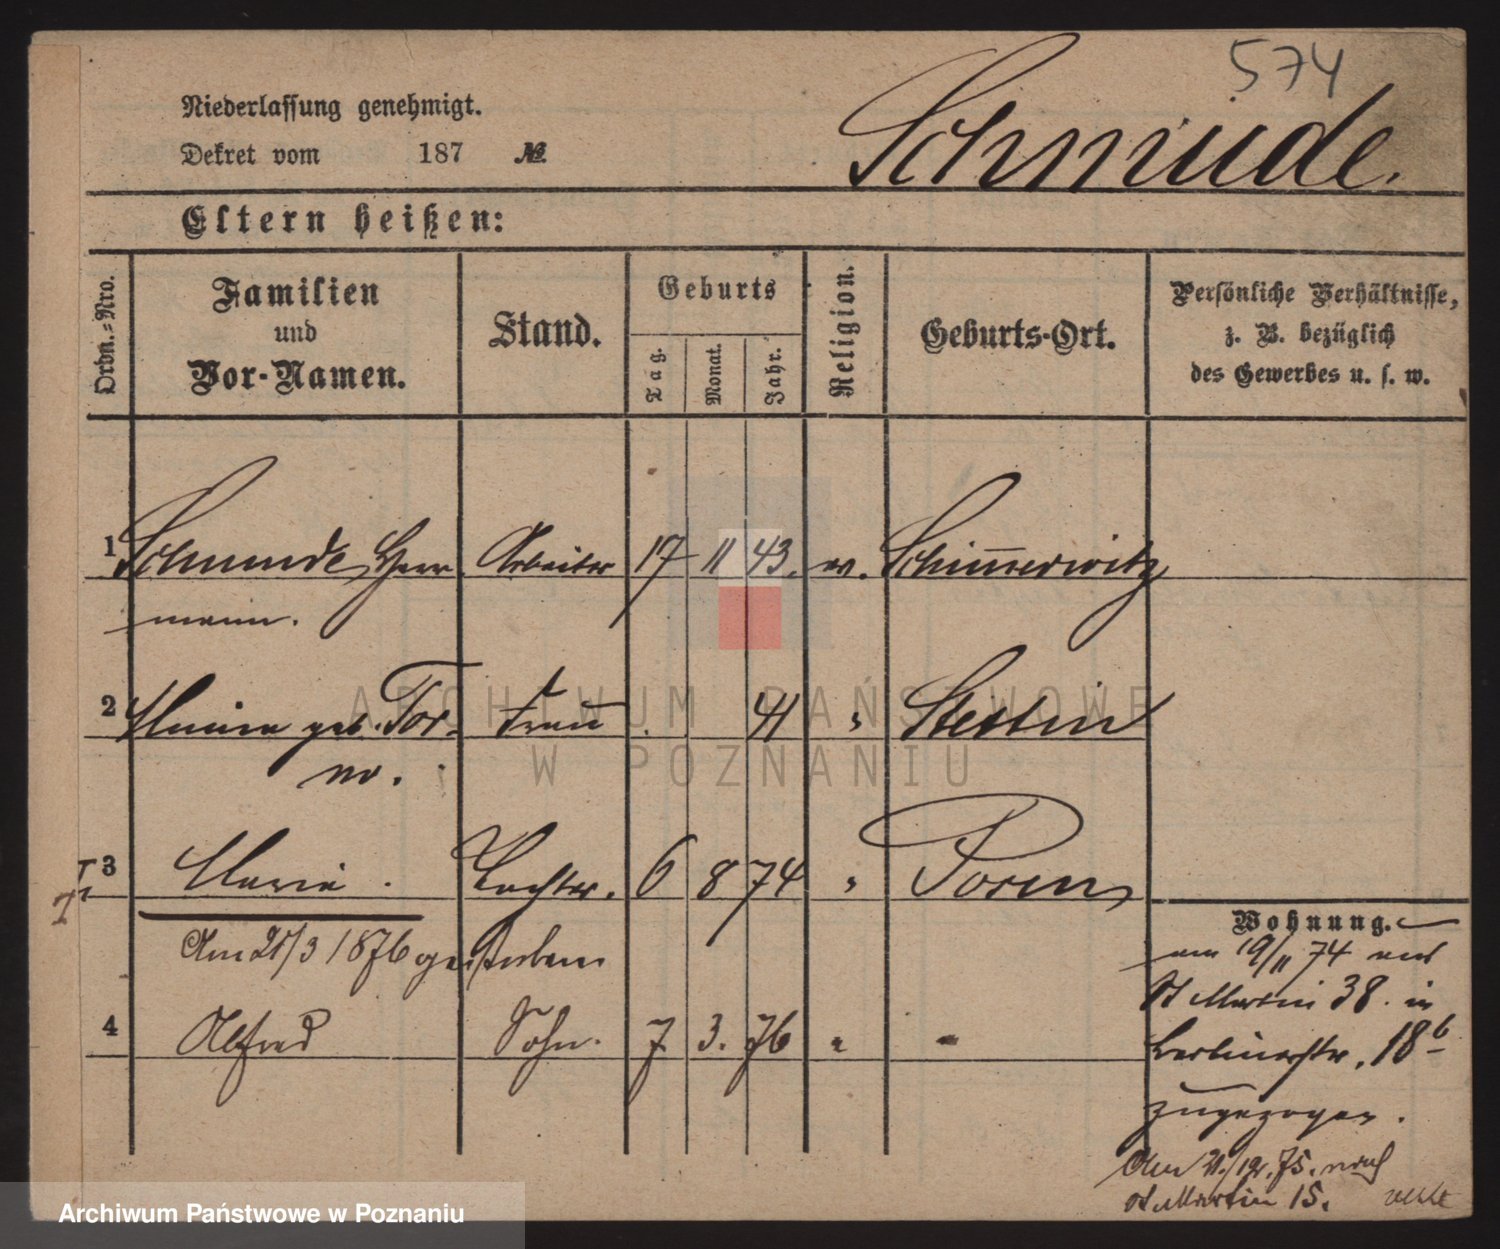 574
Niederlassung genehmigt.
Dekret vom 187 №
Schmude.
Eltern heißen:
Ordn.-Nro.
Familien und Vor-Namen.
Stand.
Geburts
Tag.
Monat.
Jahr.
Religion.
Geburts-Ort.
Persönliche Verhältnisse,
z. B. bezüglich
des Gewerbes u. s. w.
1 Schmude, Herr- Arbeiter 17 11 43. ev.
mann.
2 geb. Tor- Frau 41 " Stettin
no.
3 Marie. Tochter. 6 8 74 " Posen
Am 21/3 1876 gestorben
4 Alfred Sohn. 7 3. 76 "
Wohnung.
am 19/11 74 aus
St Martin 38. in
Berlinerstr. 18b
zugezogen.
Am 75. nach
St Martin 15.
ARCHIWUM PAŃSTWOWE
W POZNANIU
Archiwum Państwowe w Poznaniu